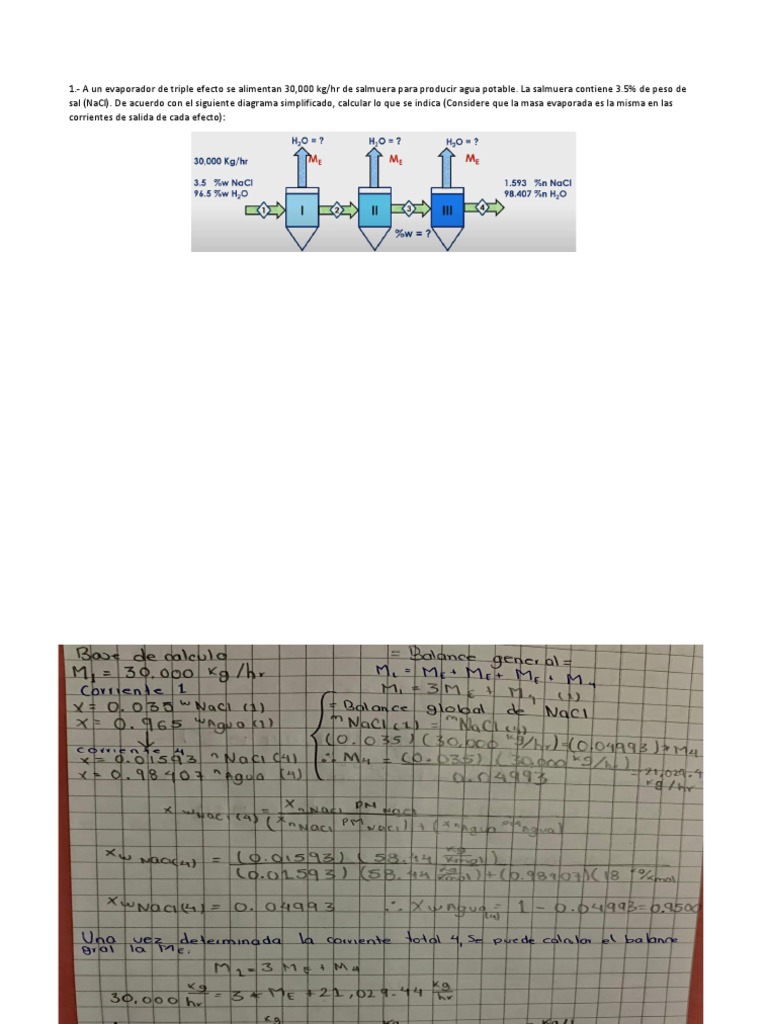 1.- A un evaporador de triple efecto se alimentan 30,000 kg/hr de salmuera para producir agua potable. La salmuera contiene 3.5% de peso de
sal (NaCl). De acuerdo con el siguiente diagrama simplificado, calcular lo que se indica (Considere que la masa evaporada es la misma en las
corrientes de salida de cada efecto):
H₂O = ? H₂O = ? H₂O = ?
30,000 Kg/hr M_E M_E M_E
3.5 %w NaCl 1.593 %n NaCl
96.5 %w H₂O 98.407 %n H₂O
1 I 2 II 3 III 4
%w = ?
Base de calculo
M₁ = 30,000 kg/hr
Corriente 1
x = 0.035 w NaCl (1)
x = 0.965 w Agua (1)
corriente 4
x = 0.01593 n NaCl (4)
x = 0.98407 n Agua (4)
= Balance general =
M₁ = M_E + M_E + M_E + M₄
M₁ = 3M_E + M₄ (1)
= Balance global de NaCl
m NaCl (1) = m NaCl (4)
(0.035) (30,000 kg/hr) = (0.04993) * M4
∴ M₄ = (0.035) (30,000 kg/hr)
0.04993
= 21,029.4
kg/hr
x w NaCl (4) = x n NaCl PM NaCl
(x n NaCl PM NaCl) + (x n Agua Agua)
x w NaCl(4) = (0.01593) (58.44 kg/kmol)
(0.01593) (58.44 kg/kmol) + (0.98407) (18 kg/kmol
x w NaCl(4) = 0.04993 ∴ x w Agua (4) = 1 - 0.04993 = 0.9500
Una vez determinada la corriente total 4, se puede calcular el balance
gral la M_E.
M₁ = 3 M_E + M₄
30,000 kg/hr = 3 * M_E + 21,029.44 kg/hr
kg